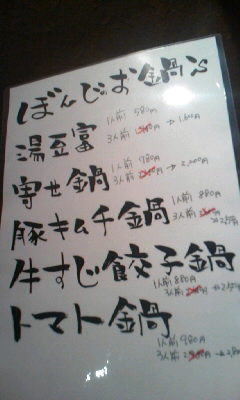 ぼんじお鍋's
湯豆富
1人前 580円
3人前 → 1,600円
寄せ鍋
1人前 780円
3人前 → 2,000円
豚キムチ鍋
1人前 880円
3人前
牛すじ餃子鍋
1人前 880円
3人前
トマト鍋
1人前 980円
3人前